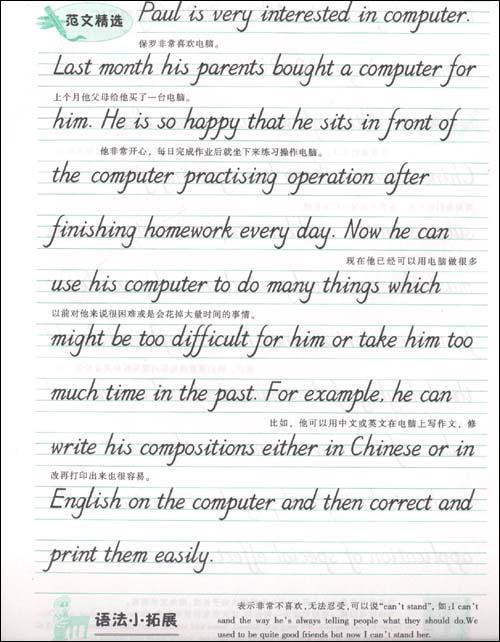 范文精选
Paul is very interested in computer.
保罗非常喜欢电脑。
Last month his parents bought a computer for
上个月他父母给他买了一台电脑。
him. He is so happy that he sits in front of
他非常开心，每日完成作业后就坐下来练习操作电脑。
the computer practising operation after
finishing homework every day. Now he can
现在他已经可以用电脑做很多
use his computer to do many things which
以前对他来说很困难或是会花掉大量时间的事情。
might be too difficult for him or take him too
much time in the past. For example, he can
比如，他可以用中文或英文在电脑上写作文，修
write his compositions either in Chinese or in
改再打印出来也很容易。
English on the computer and then correct and
print them easily.
语法小拓展
表示非常不喜欢，无法忍受，可以说“can't stand”，如：I can't
sand the way he's always telling people what they should do.We
used to be quite good friends but now I can't stand her.